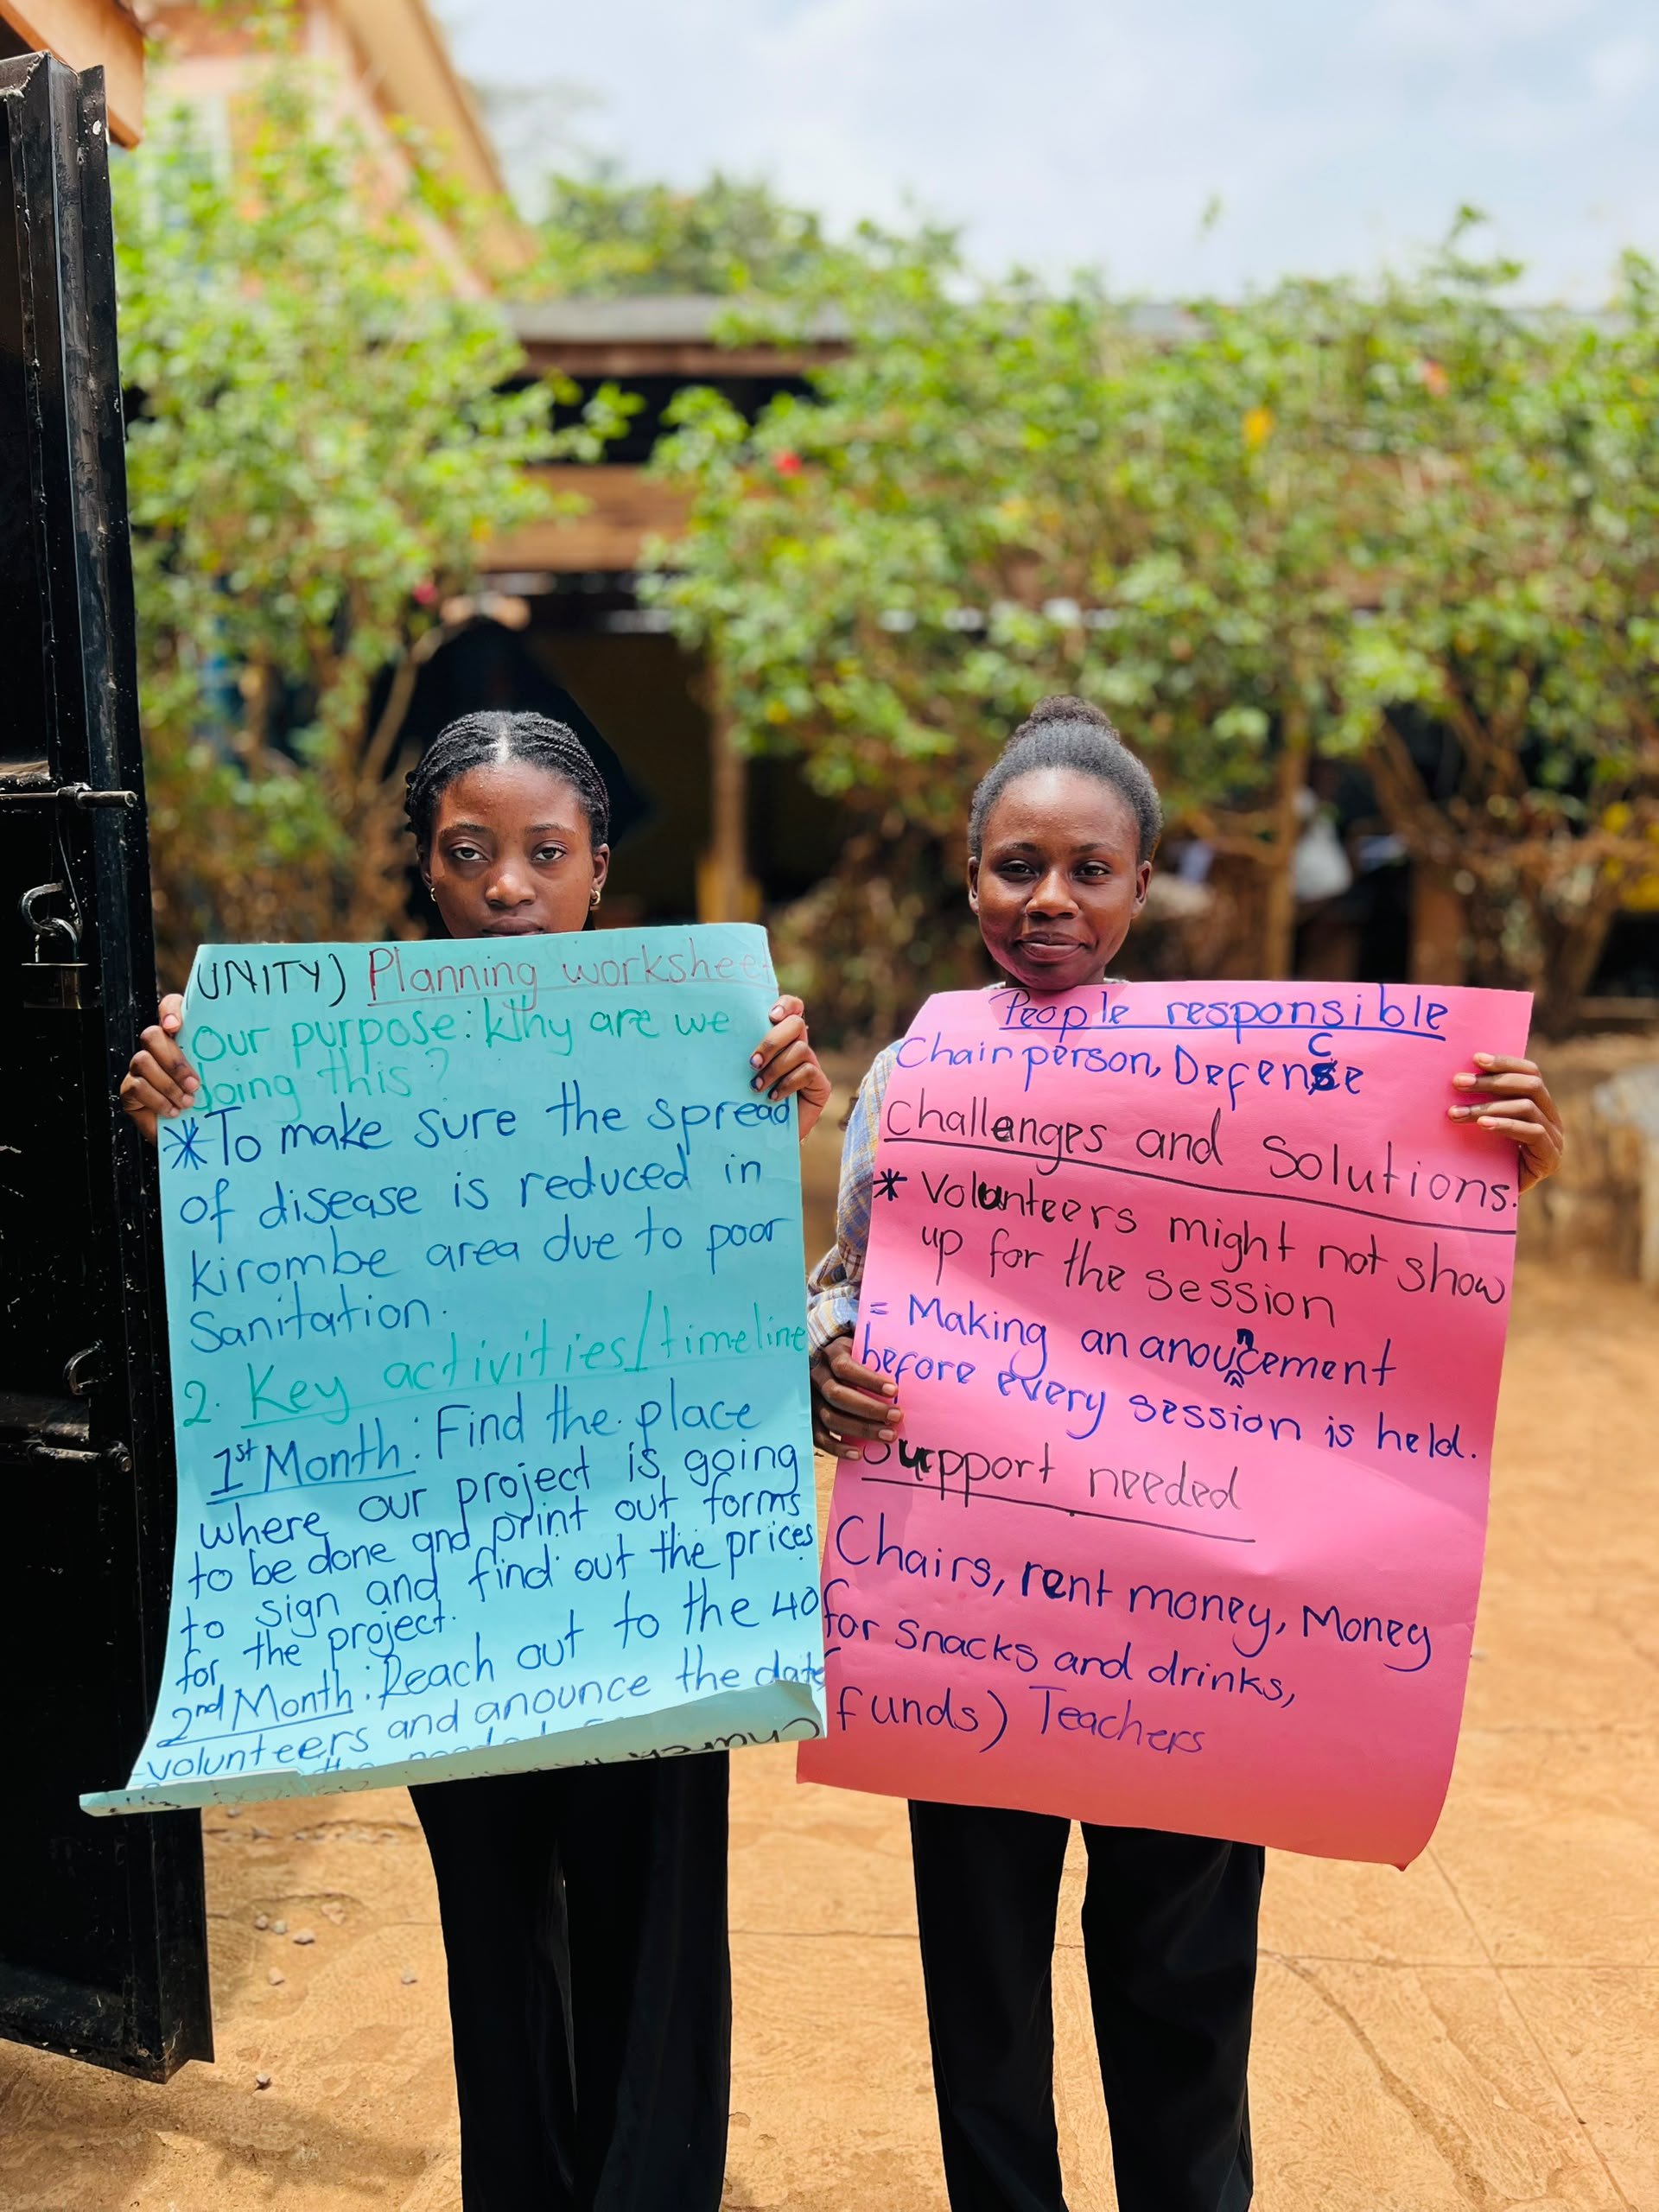 UNITY) Planning workshee
Our purpose: Why are we
doing this?
*To make sure the spread
of disease is reduced in
kirombe area due to poor
Sanitation.
2. Key activities/timeline
1st Month: Find the place
where our project is going
to be done and print out forms
to sign and find out the prices
for the project.
2nd Month: Reach out to the 40
volunteers and anounce the date
People responsible
Chairperson, Defence
Challenges and Solutions.
* Volunteers might not show
up for the session
= Making an anouncement
before every session is held.
Support needed
Chairs, rent money, Money
for snacks and drinks,
funds) Teachers